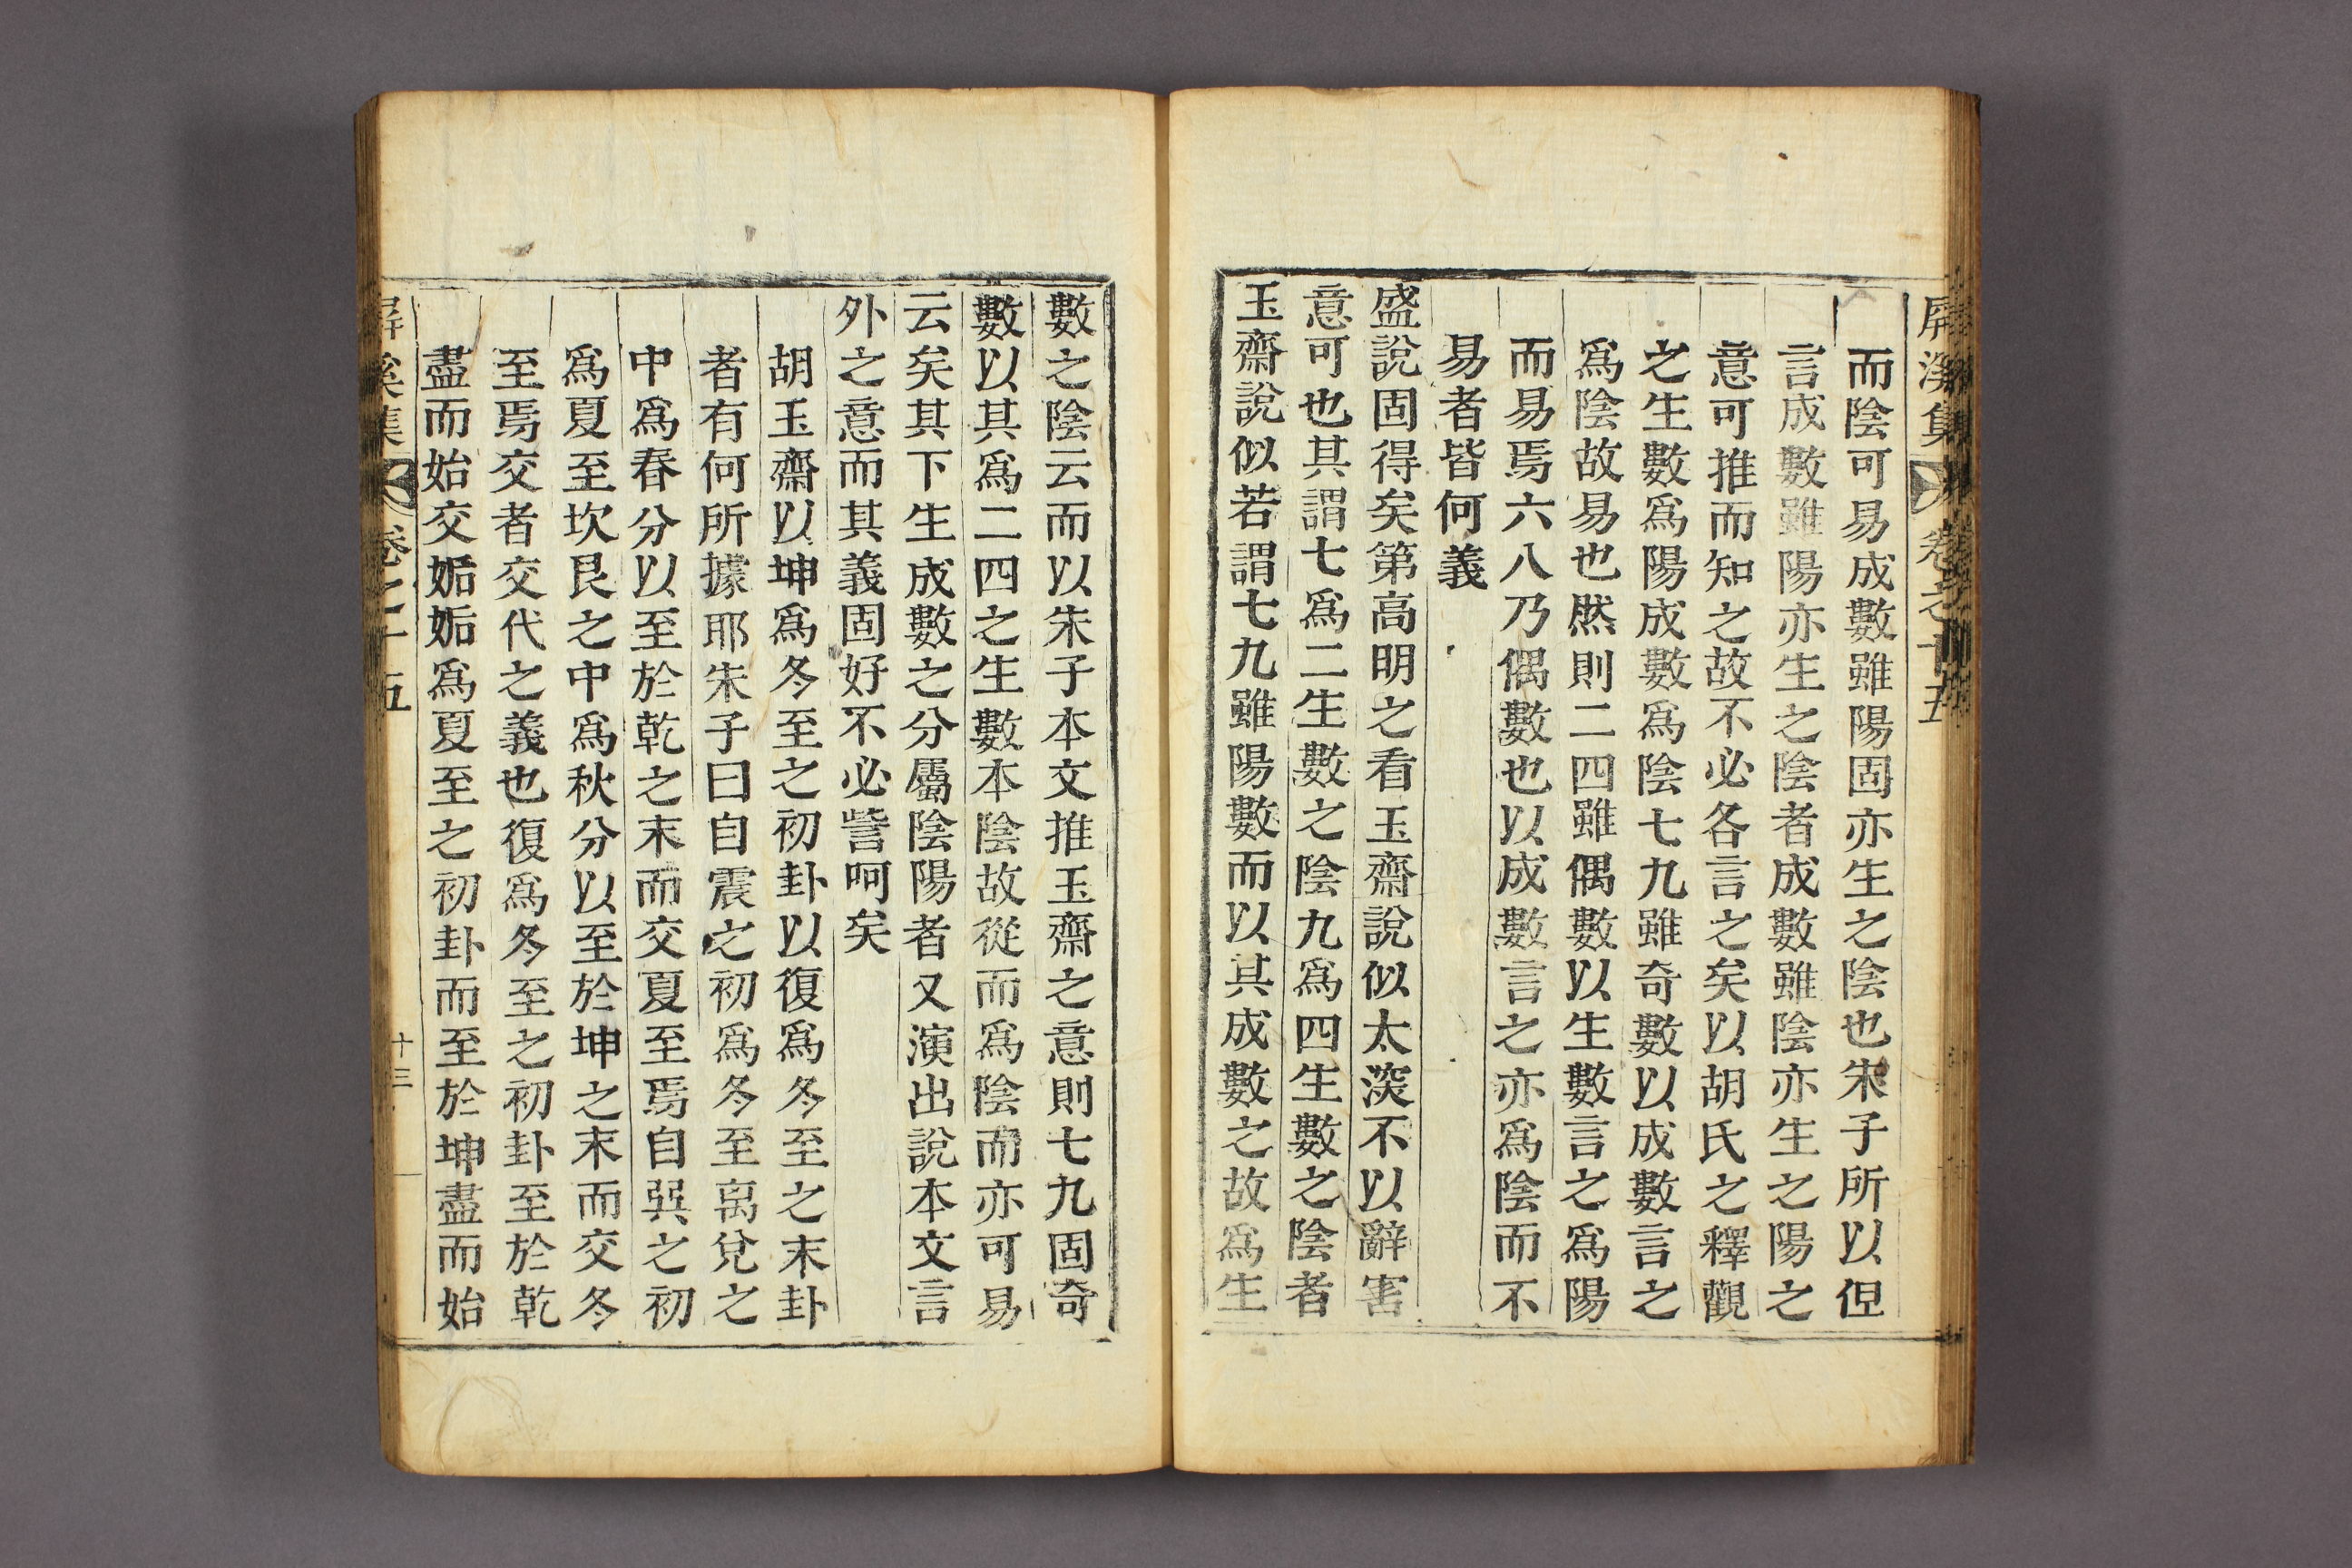 屛溪集 卷之十五
而陰可易成數雖陽固亦生之陰也朱子所以但
言成數雖陽亦生之陰者成數雖陰亦生之陽之
意可推而知之故不必各言之矣以胡氏之釋觀
之生數爲陽成數爲陰七九雖奇數以成數言之
爲陰故易也然則二四雖偶數以生數言之爲陽
而易焉六八乃偶數也以成數言之亦爲陰而不
易者皆何義
盛說固得矣第高明之看玉齋說似太深不以辭害
意可也其謂七爲二生數之陰九爲四生數之陰者
玉齋說似若謂七九雖陽數而以其成數之故爲生
數之陰云而以朱子本文推玉齋之意則七九固奇
數以其爲二四之生數本陰故從而爲陰而亦可易
云矣其下生成數之分屬陰陽者又演出說本文言
外之意而其義固好不必訾呵矣
胡玉齋以坤爲冬至之初卦以復爲冬至之末卦
者有何所據耶朱子曰自震之初爲冬至离兌之
中爲春分以至於乾之末而交夏至焉自巽之初
爲夏至坎艮之中爲秋分以至於坤之末而交冬
至焉交者交代之義也復爲冬至之初卦至於乾
盡而始交姤姤爲夏至之初卦而至於坤盡而始
屛溪集 卷之十五 十三